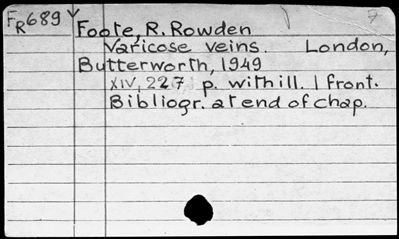 FR689
Foote, R. Rowden
Varicose veins. London,
Butterworth, 1949
XIV, 227 p. with ill. 1 front.
Bibliogr. at end of chap.